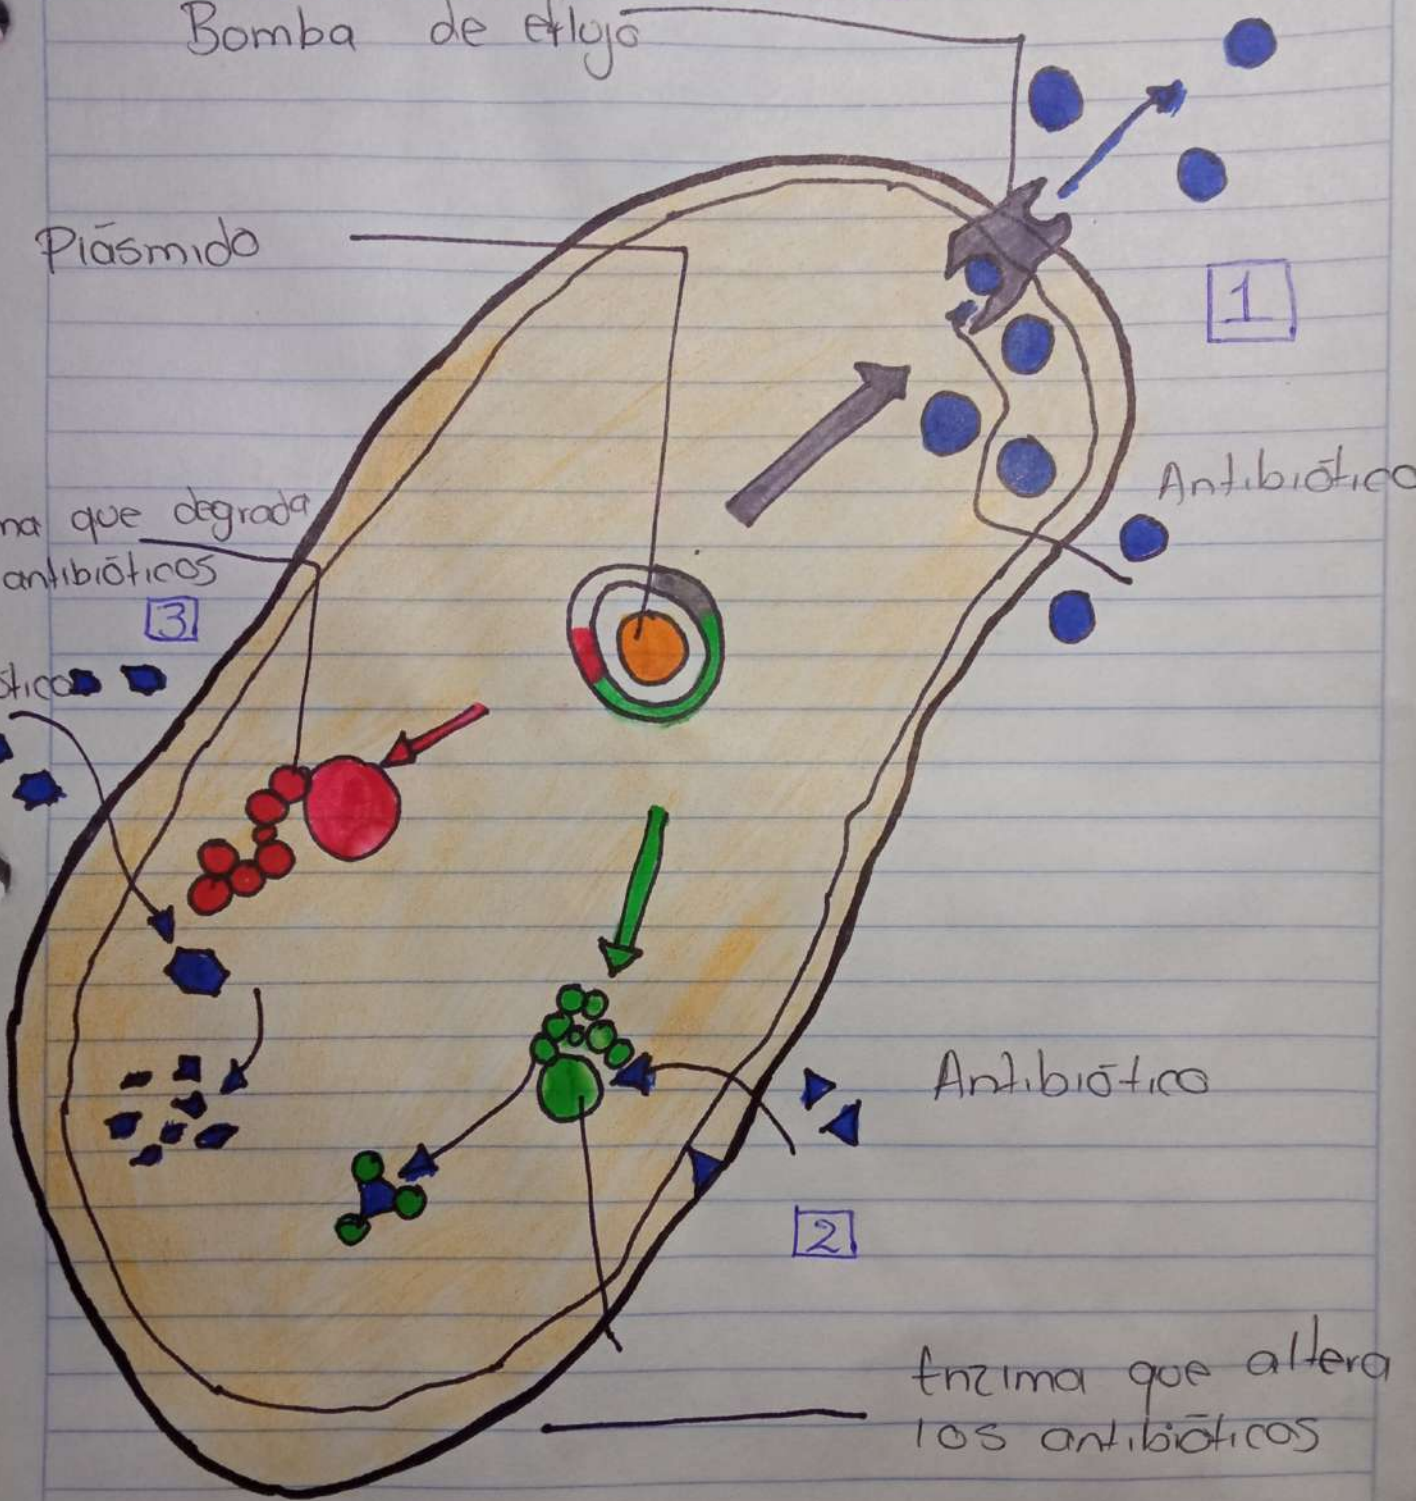 Bomba de eflujo
Plásmido
1
Antibiótico
que degrada
antibióticos
3
Antibiótico
2
Enzima que altera
los antibióticos